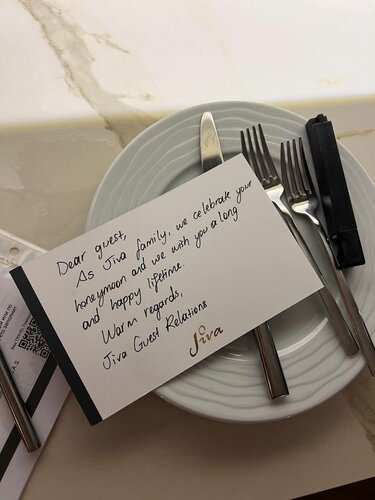 Dear guest,
As Jiva family, we celebrate your
honeymoon and we with you a long
and happy lifetime.
Warm regards,
Jiva Guest Relations
Jiva